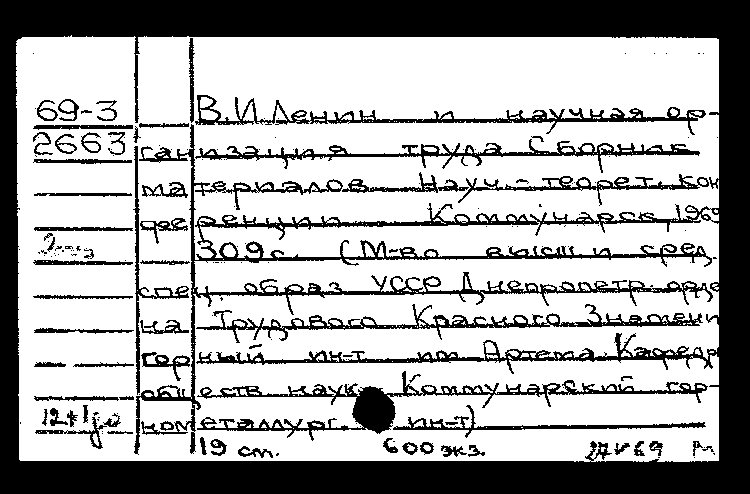 69-3
2663
В.И.Ленин и научная ор-
ганизация труда Сборник
материалов Науч.-теорет. кон
ференции Коммунарск, 1969
309 с. (М-во высш и сред.
спец. образ УССР Днепропетр. орде
на Трудового Красного Знамени
горный ин-т им Артема Кафедр
обществ наук Коммунарский гор-
нометаллург. ин-т)
19 см. 600 экз. 27 V 69 М